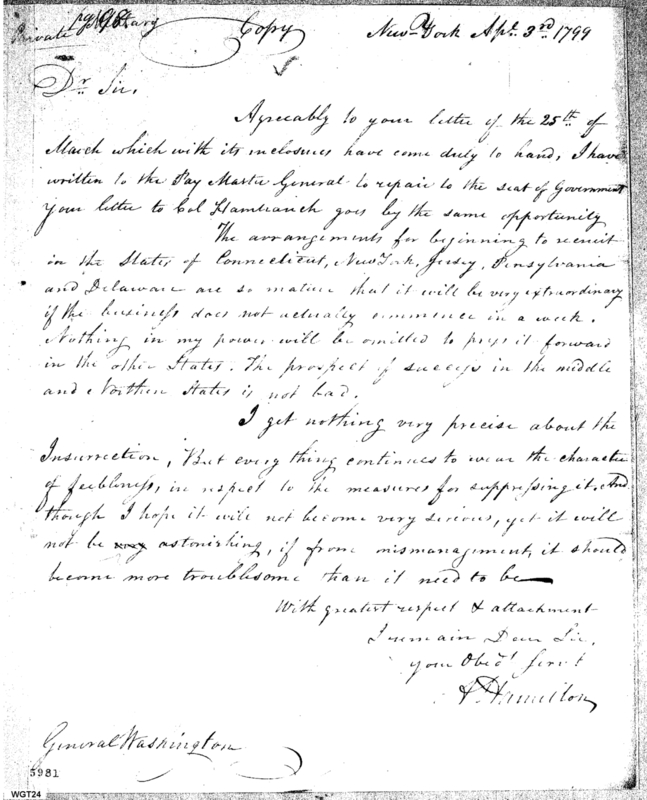 Private
Copy
New York Apl. 3rd. 1799
Dr. Sir.
Agreeably to your letter of the 25th of
March which with its inclosures have come duly to hand, I have
written to the Pay Master General to repair to the seat of Government
Your letter to Col Hambranch goes by the same opportunity
The arrangements for beginning to recruit
in the States of Connecticut, New York, Jersey, Pensylvania
and Delaware are so mature that it will be very extraordinary
if the business does not actually commence in a week.
Nothing in my power will be omitted to press it forward
in the other States. The prospect of success in the middle
and Northern States is not bad.
I get nothing very precise about the
Insurrection, But every thing continues to wear the character
of feebleness, in respect to the measures for suppressing it. And
though I hope it will not become very serious, yet it will
not be astonishing, if from mismanagement, it should
become more troublesome than it need to be
With greatest respect & attachment
I remain Dear Sir.
your Obedt. Servt
A. Hamilton
General Washington
5981
WGT24